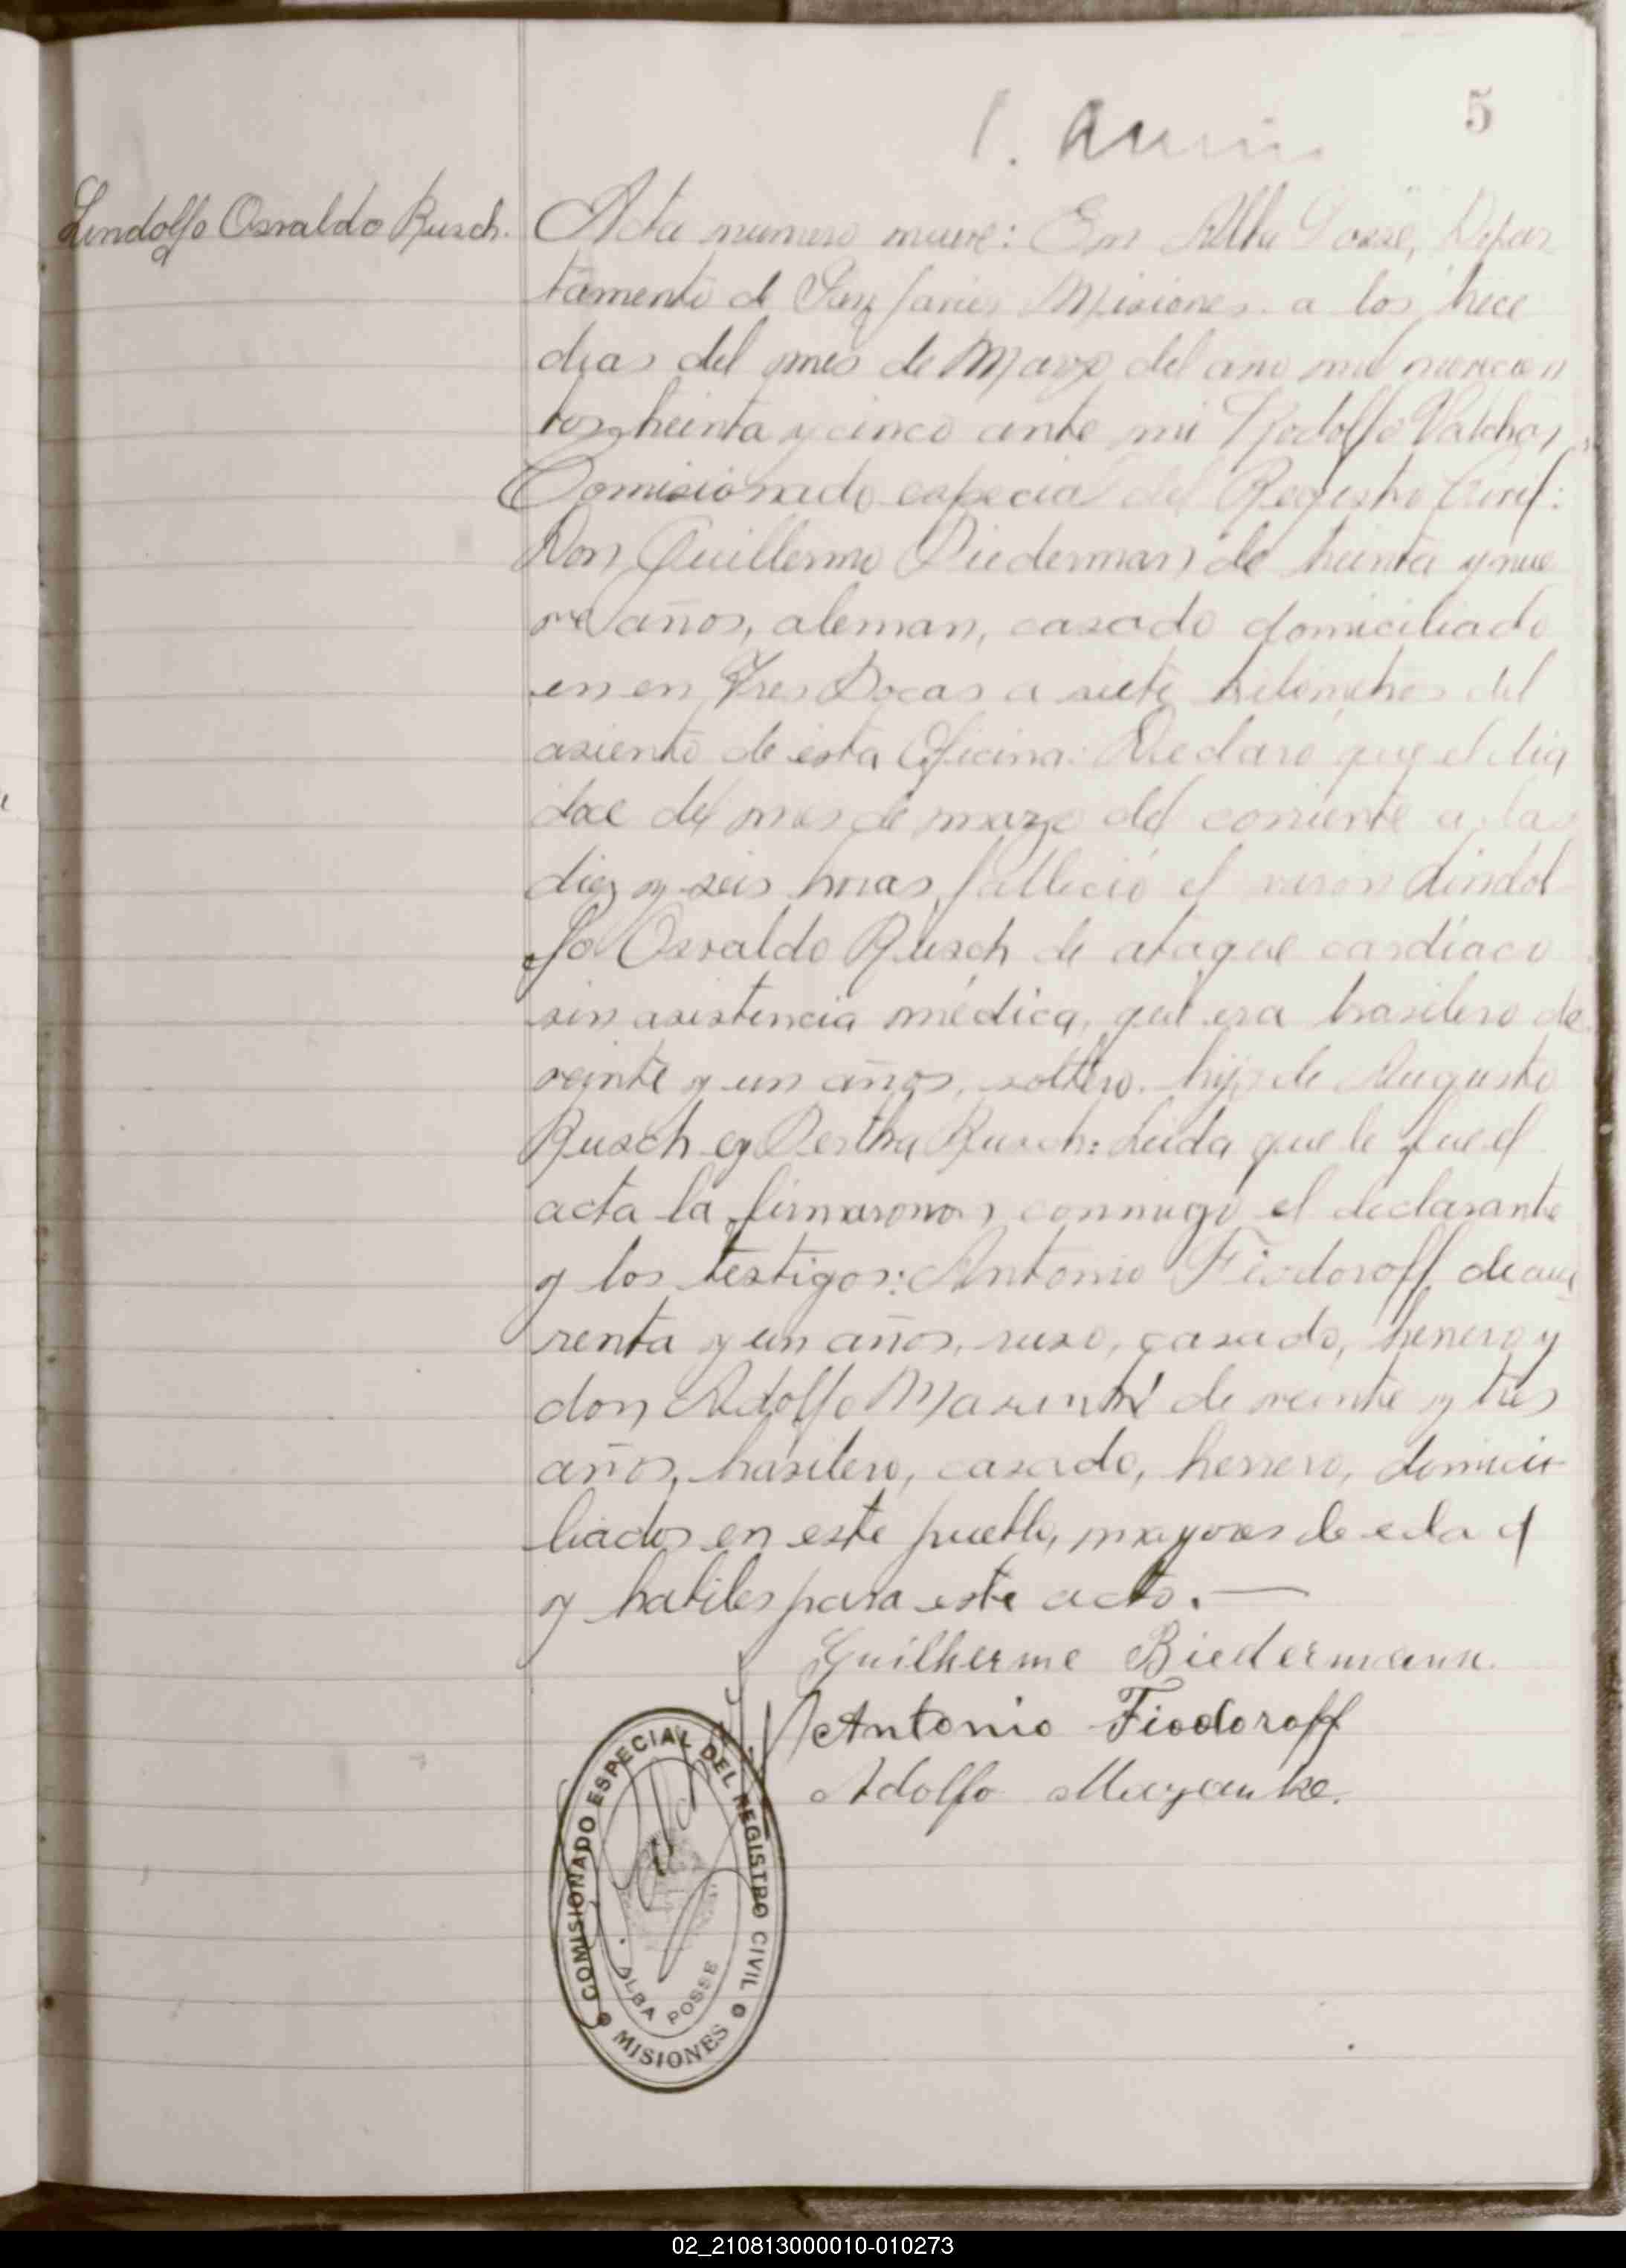 5
Lindolfo Osvaldo Rusch.
Acta numero nueve: En Alba Posse, Depar
tamento de San Javier Misiones a los trece
dias del mes de Marzo del año mil novecien
tos treinta y cinco ante mi Rodolfo
Comisionado especial del Registro Civil:
Don Guillermo Biederman de treinta y nue
ve años, aleman, casado domiciliado
en en Tres Bocas a siete kilometros del
asiento de esta Oficina: Declaró que el dia
doce del mes de marzo del corriente a las
diez y seis horas falleció el varon Lindol
fo Osvaldo Rusch de ataque cardíaco
sin asistencia médica, que era brasilero de
veinte y un años, soltero. hijo de Augusto
Rusch y Bertha Rusch: Leida que le fue el
acta la firmaron conmigo el declarante
y los testigos: Antonio Fiodoroff de cua
renta y un años, ruso, casado, herrero y
don Adolfo de veinte y tres
años, brasilero, casado, herrero, domici
liados en este pueblo, mayores de edad
y habiles para este acto.—
Guilherme Biedermann.
Antonio Fiodoroff
Adolfo
COMISIONADO ESPECIAL DEL REGISTRO CIVIL
ALBA POSSE
MISIONES
02_210813000010-010273